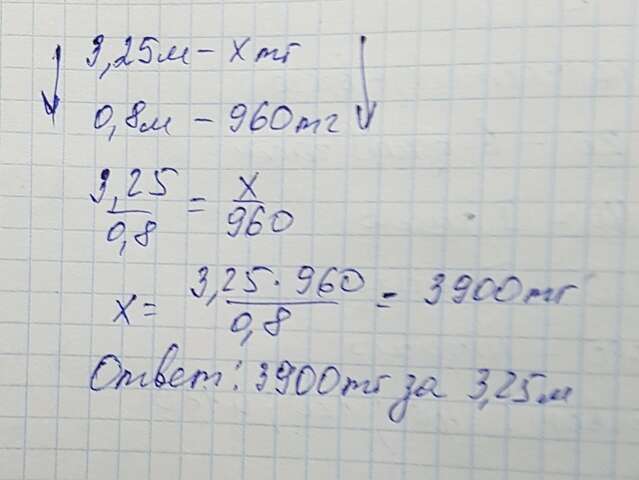 3,25м – x тг
0,8м – 960тг
3,25/0,8 = x/960
x = 3,25 · 960/0,8 = 3900тг
Ответ: 3900тг за 3,25м